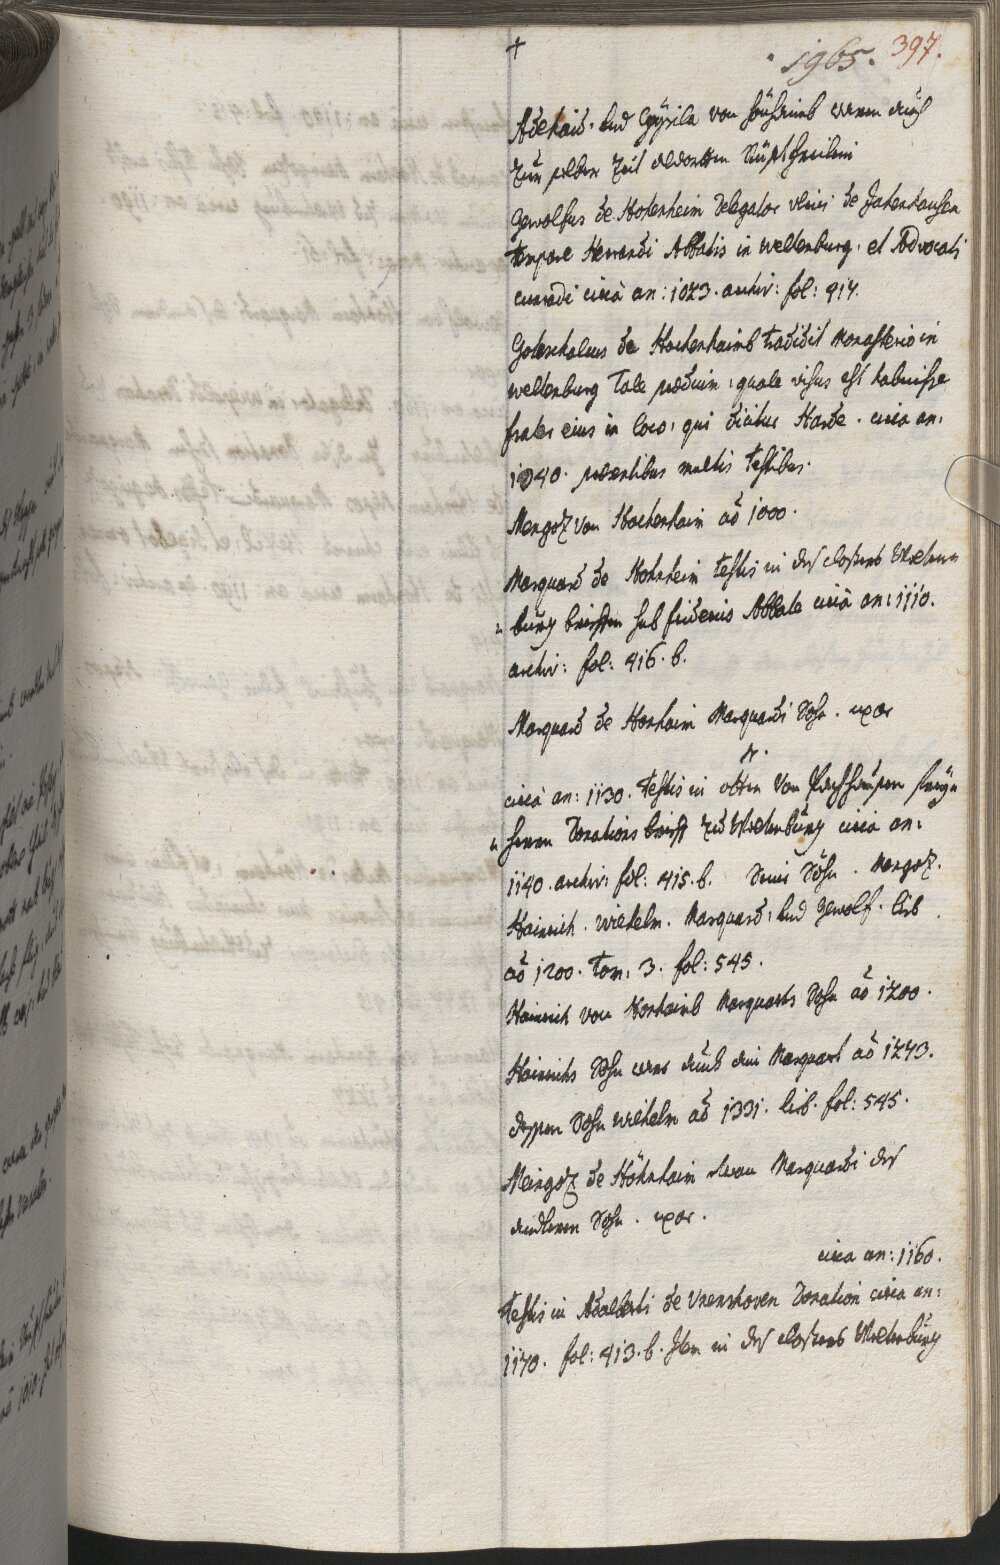 +
· 1965 · 397.
Adelhaid · und von waren auch
Zur selben Zeit
Gewolfus de Hohenheim Delegator de
tempore Herrandi Abbatis in weltenburg · et Advocati
circà an: 1073 · archiv: fol: 914.
Goteschalcus de Hochenhaimb tradidit Monasterio in
weltenburg tale predium, quale visus est habuisse
frater eius in loco, qui dicitur Harde · circa an:
1040 · multis testibus·
Mergoz von Hochenhaim aõ 1000 ·
Marquard de Hohnheim testis in des closters Welten
burg brieffen sub Abbate circà an: 1110.
archiv: fol: 416 · b.
Marquard de Horhaim Marquardi Sohn · uxor
N·
circà an: 1130 · testis in otten Von
herrn Donations brieff zu Weltenburg circa an:
1140 · archiv: fol: 415 · b. Seine Söhn · Mergoz ·
Hainrich · wilhelm · Marquard, und gewolf · lib
aõ 1200 · tom: 3 · fol: 545 ·
Hainrich von Horhaimb Marquarts Sohn aõ 1200 ·
Hainrichs Sohn ware auch ein Marquart aõ 1243.
dessen Sohn wilhelm aõ 1331 · lib · fol: 545 ·
Meingoz de Höhnhaim Marquardi des
anderen Sohn · uxor ·
circa an: 1160 ·
testis in Adalberti de Donation circa an:
1170 · fol: 413 · b · Item in des closters Weltenburg